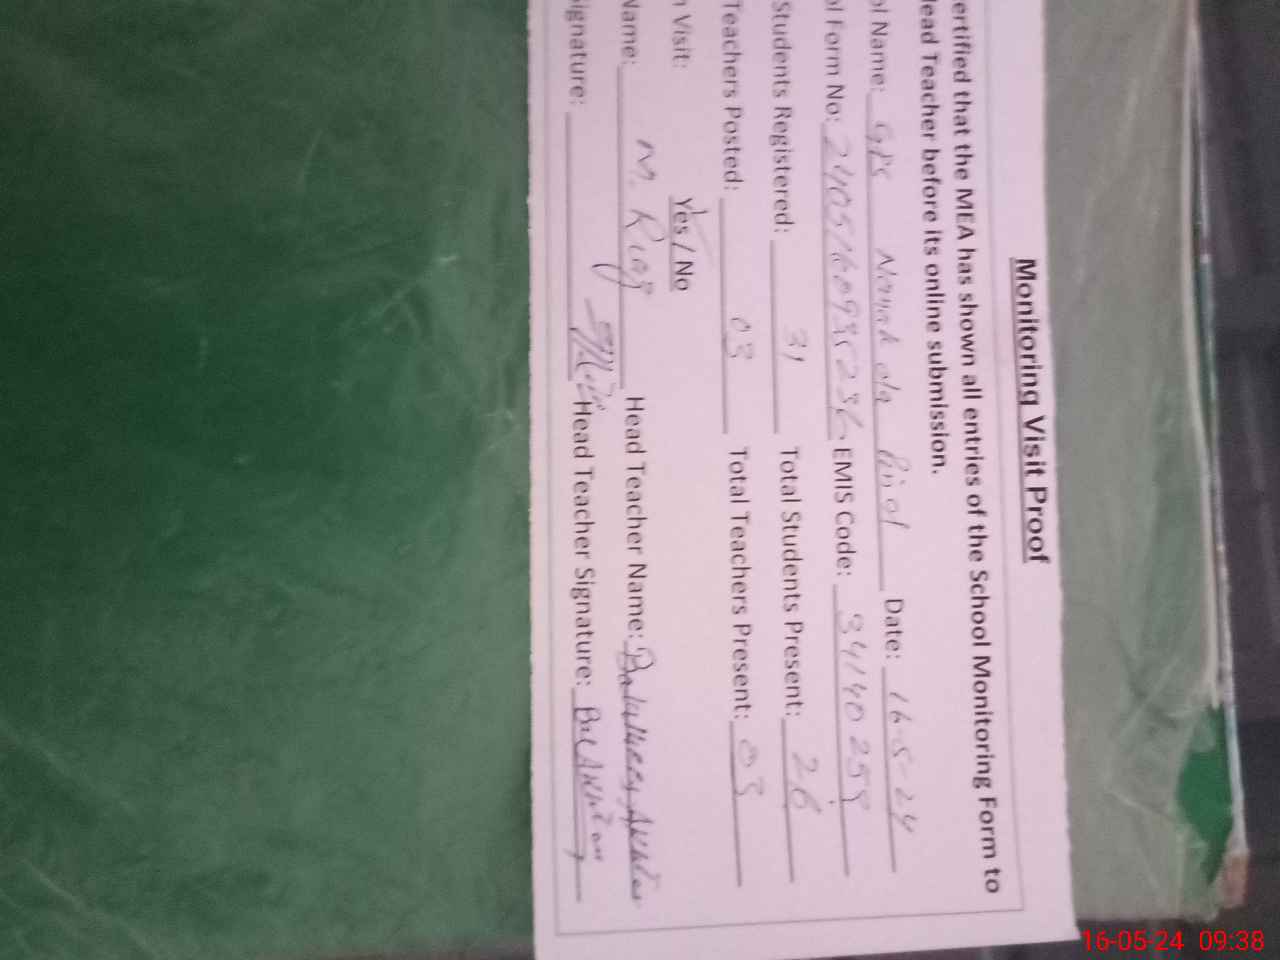 Monitoring Visit Proof
ertified that the MEA has shown all entries of the School Monitoring Form to
ead Teacher before its online submission.
ol Name: GPS Date: 16-5-24
ol Form No: EMIS Code: 34140259
Students Registered: 31 Total Students Present: 26
Teachers Posted: 03 Total Teachers Present: 03
n Visit: Yes / No
Name: M. Riaz Head Teacher Name: Akhter
ignature: Head Teacher Signature:
16-05-24 09:38